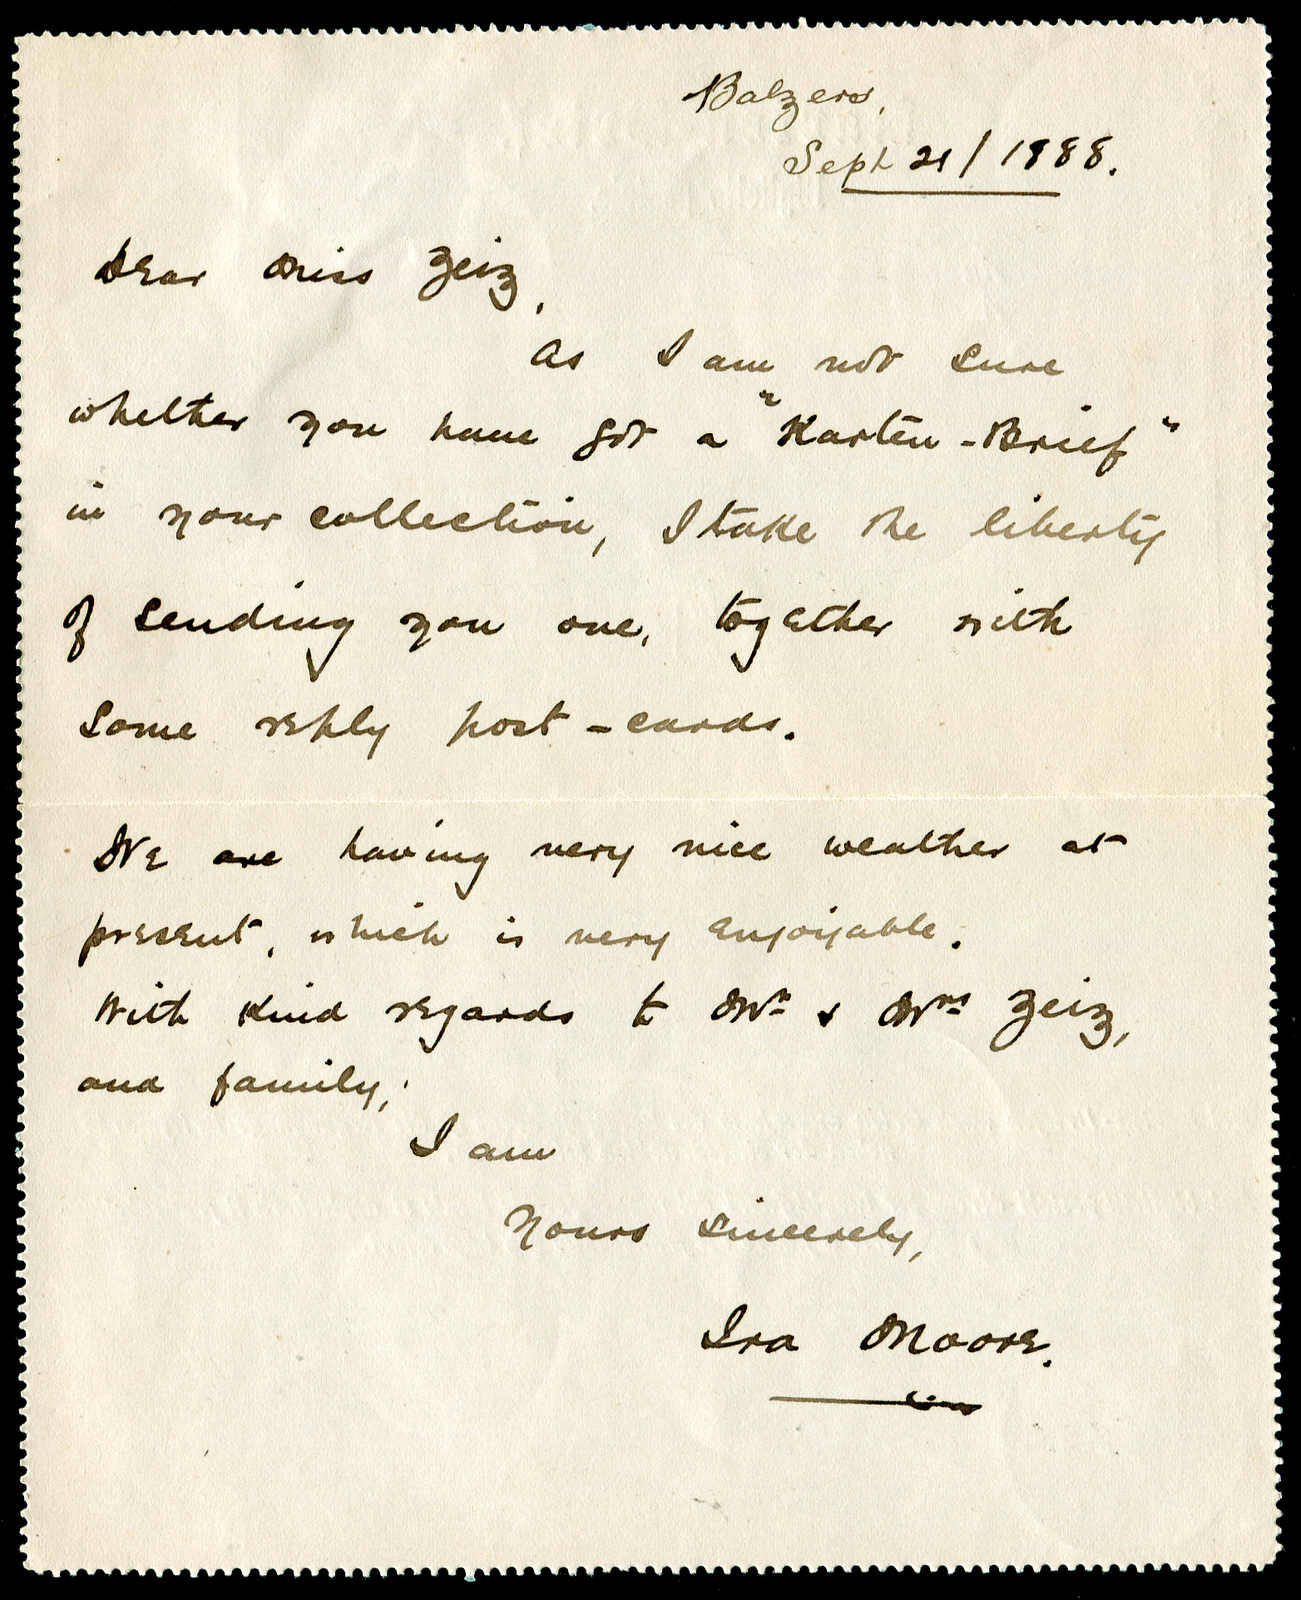 Balzers,
Sept 21/1888.
Dear Miss Zeiz,
As I am not sure
whether you have got a "Karten-Brief"
in your collection, I take the liberty
of sending you one, together with
some reply post-cards.
We are having very nice weather at
present, which is very enjoyable.
With kind regards to Mr & Mrs Zeiz,
and family;
I am
Yours sincerely,
Ira Moore.